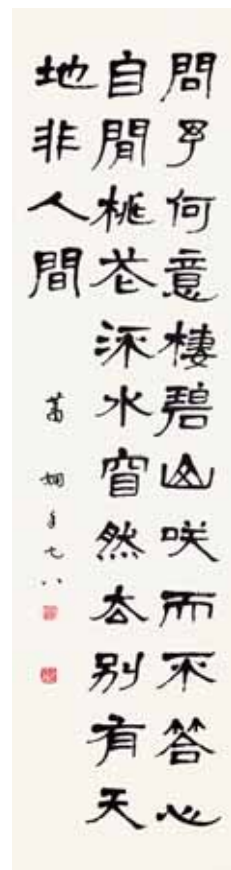 問予何意棲碧山咲而不答心
自閒桃花流水窅然去別有天
地非人間
蕭嫻年七八